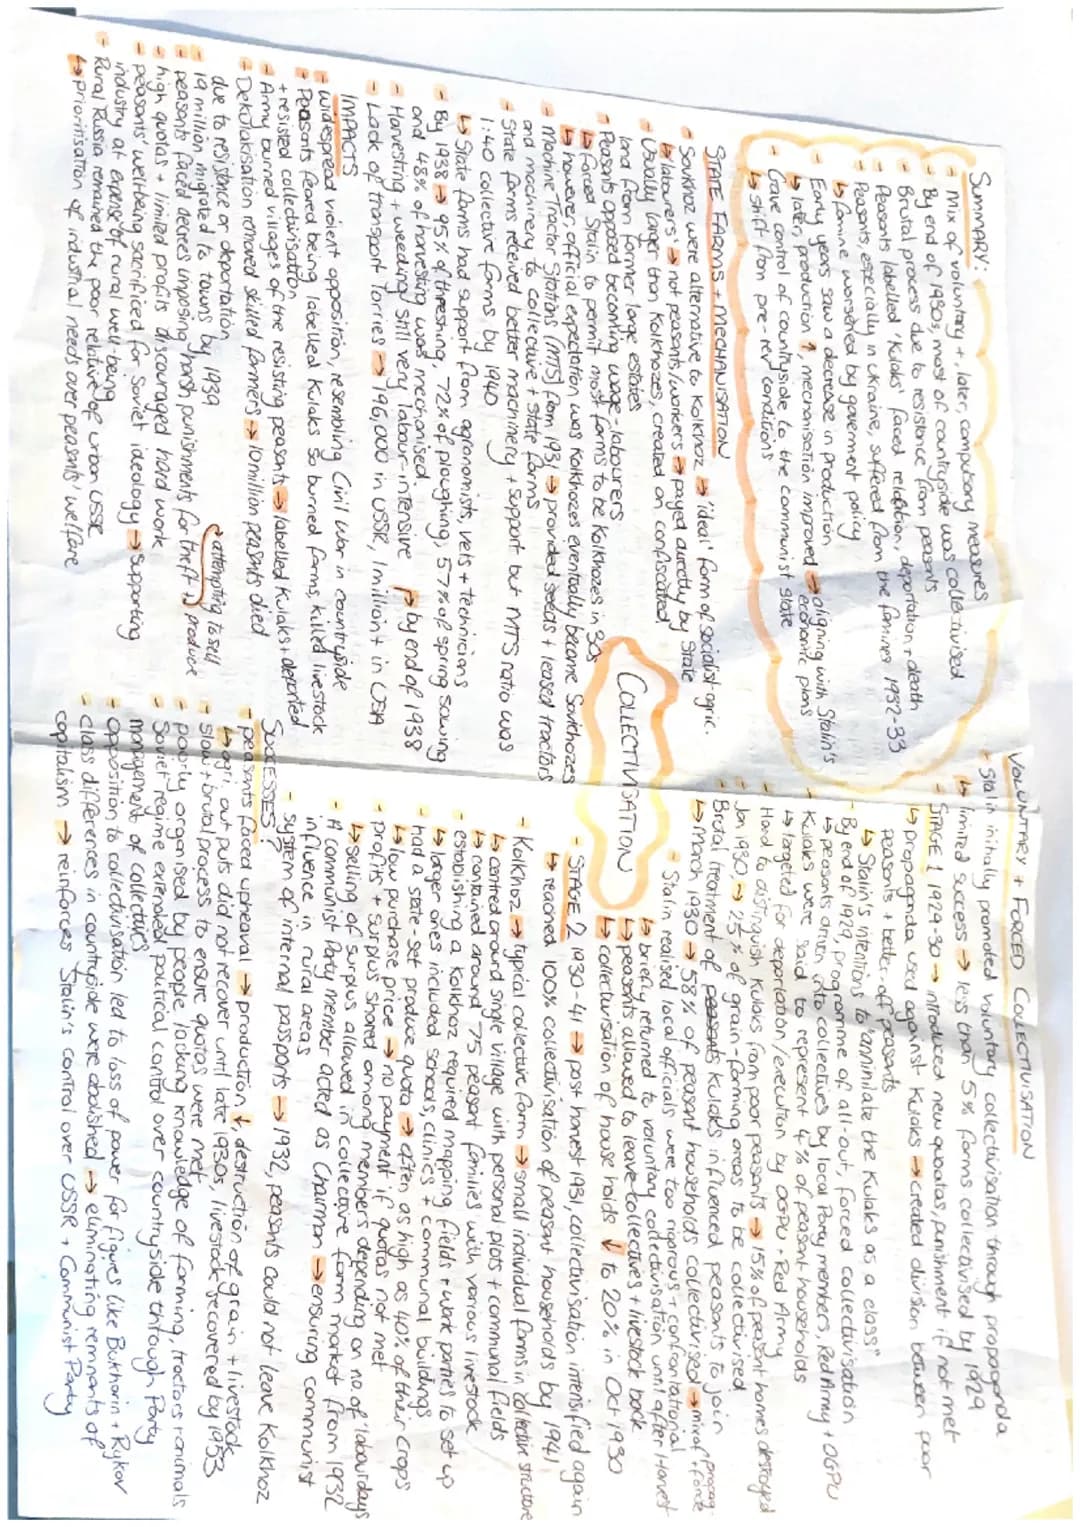 COLLECTIVISATION
SUMMARY:
- Mix of voluntary + , later, compulsory measures
- By end of 1930s, most of countryside was collectivised
- Brutal process due to resistance from peasants
- Peasants labelled 'Kulaks' faced retaliation, deportation + death
- Peasants, especially in Ukraine, suffered from the famines 1932-33
↳ famine worsened by government policy
- Early years saw a decrease in production
↳ later, production ↑ mechanisation improved → aligning with Stalin's economic plans
- Gave control of countryside to the communist state
↳ shift from pre-rev conditions
STATE FARMS + MECHANISATION
- Sovkhoz were alternative to Kolkhoz → 'ideal' form of socialist agric.
↳ 'labourers' → not peasants/workers → payed directly by state
- Usually larger than Kolkhozes, created on confiscated
land from former large estates
- Peasants opposed becoming wage-labourers
↳ forced Stalin to permit most farms to be Kolkhozes in 30s
↳ however, official expectation was Kolkhozes eventually become Sovkhozes
- Machine Tractor Stations (MTS) from 1931 → provided seeds + leased tractors
and machinery to collective + state farms
- State farms received better machinery + support but MTS ratio was
1:40 collective farms by 1940
↳ State farms had support from agronomists, vets + technicians
- By 1938 → 95% of threshing, 72% of ploughing, 57% of spring sowing
and 48% of harvesting was mechanised.
- Harvesting + weeding still very labour-intensive
- Lack of transport lorries → 196,000 in USSR, 1 million + in USA
↳ by end of 1938
IMPACTS
- widespread violent opposition, resembling Civil War in countryside
- Peasants feared being labelled Kulaks so burned farms, killed livestock
+ resisted collectivisation
- Army burned villages of the resisting peasants → labelled Kulaks + deported
- Dekulakisation removed skilled farmers → 10 million peasants died
due to resistance or deportation
- 19 million migrated to towns by 1939
- peasants faced decrees imposing harsh punishments for theft → attempting to sell product
- high quotas + limited profits discouraged hard work
- peasants' well-being sacrificed for Soviet ideology → supporting
industry at expense of rural well-being
- Rural Russia remained the poor relative of urban USSR
↳ prioritisation of industrial needs over peasants' welfare
VOLUNTARY + FORCED COLLECTIVISATION
- Stalin initially promoted voluntary collectivisation through propaganda
↳ limited success → less than 5% farms collectivised by 1929
- STAGE 1 1929-30 → introduced new quoatas, punishment if not met
↳ propaganda used against Kulaks → created division between poor
peasants + better-off peasants
↳ Stalin's intentions to "annihilate the Kulaks as a class"
- By end of 1929, programme of all-out, forced collectivisation
↳ peasants driven into collectives by local Party members, Red Army + OGPU
- Kulaks were said to represent 4% of peasant households
↳ targeted for deportation/execution by OGPU + Red Army
- Hard to distinguish Kulaks from poor peasants → 15% of peasant homes destroyed
- Jan 1930, → 25% of grain-farming areas to be collectivised
- Brutal treatment of Kulaks influenced peasants to join
↳ March 1930 → 58% of peasant households collectivised → mix of propag. + force
- Stalin realised local officials were too rigorous + confrontational
↳ briefly returned to voluntary collectivisation until after Harvest
↳ peasants allowed to leave collectives + livestock back
↳ collectivisation of house holds ↓ to 20% in Oct 1930
- STAGE 2 1930-41 → post harvest 1931, collectivisation intensified again
↳ reached 100% collectivisation of peasant households by 1941
- Kolkhoz → typical collective farm → small individual farms in collective structure
↳ centred around single village with personal plots + communal fields
↳ contained around 75 peasant families with various livestock
- establishing a Kolkhoz required mapping fields + work parties to set up
↳ larger ones included schools, clinics + communal buildings
- had a state-set produce quota → often as high as 40% of their crops
↳ low purchase price → no payment if quotas not met
- profits + surplus shared among members depending on no. of 'labour days'
↳ selling of surplus allowed in collective farm market from 1932
- A communist Party member acted as Chairman → ensuring communist
influence in rural areas
- System of internal passports → 1932, peasants could not leave Kolkhoz
SUCCESSES?
- peasants faced upheaval → production ↓, destruction of grain + livestock
↳ agri. out puts did not recover until late 1930s, livestock recovered by 1953
- slow + brutal process to ensure quotas were met
- poorly organised by people lacking knowledge of farming, tractors + animals
- Soviet regime extended political control over countryside through Party
management of collectives
- Opposition to collectivisation led to loss of power for figures like Bukharin + Rykov
- Class differences in countryside were abolished → eliminating remnants of
capitalism → reinforces Stalin's control over USSR + Communist Party